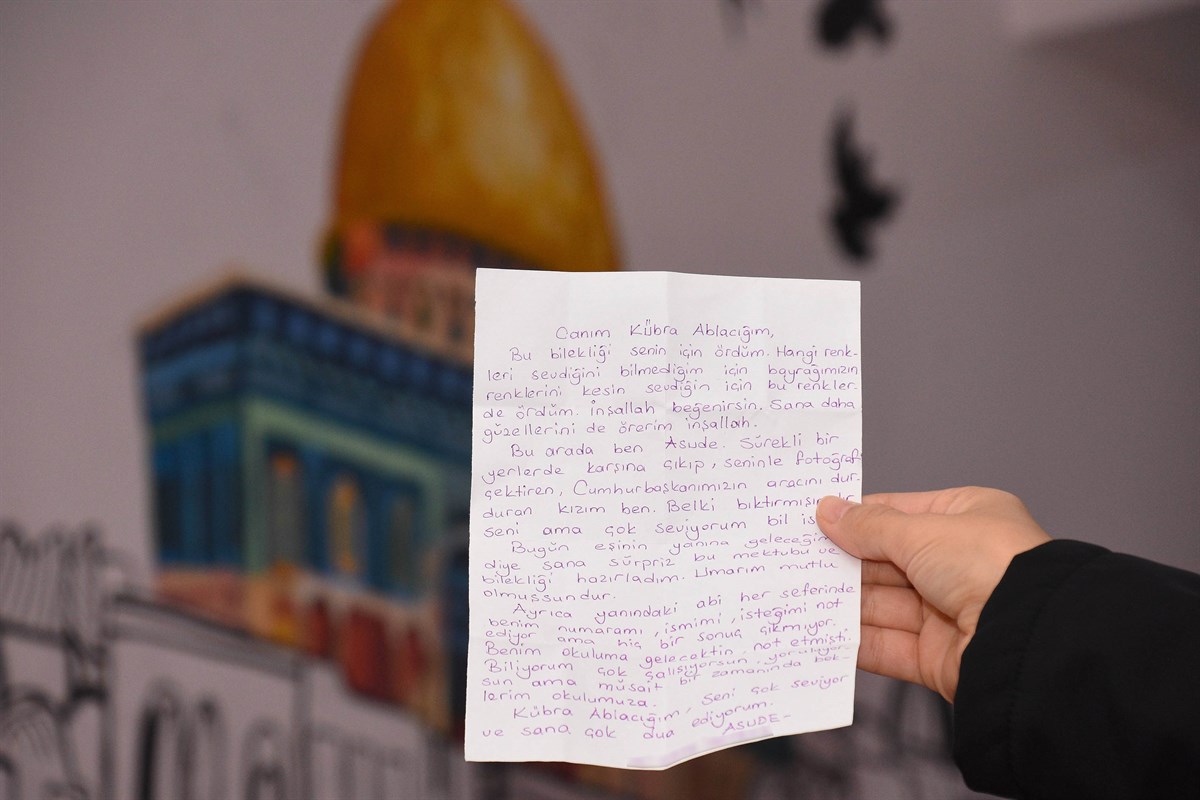 Canım Kübra Ablacığım,
Bu bilekliği senin için ördüm. Hangi renk-
leri sevdiğini bilmediğim için bayrağımızın
renklerini kesin sevdiğin için bu renkler-
de ördüm. İnşallah beğenirsin. Sana daha
güzellerini de örerim inşallah.
Bu arada ben Asude. Sürekli bir
yerlerde karşına çıkıp, seninle fotoğraf
çektiren, Cumhurbaşkanımızın aracını dur-
duran kızım ben. Belki
seni ama çok seviyorum bil
Bugün eşinin yanına
diye sana sürpriz bu mektubu ve
bilekliği hazırladım. Umarım mutlu
olmuşsundur.
Ayrıca yanındaki abi her seferinde
benim numaramı, ismimi, isteğimi not
ediyor ama hiç bir sonuç çıkmıyor.
Benim okuluma gelecektin not etmişti.
Biliyorum çok çalışıyorsun yoruluyor-
sun ama müsait bir zamanında bek-
lerim okulumuza.
Kübra Ablacığım, seni çok seviyor
ve sana çok dua ediyorum.
ASUDE-